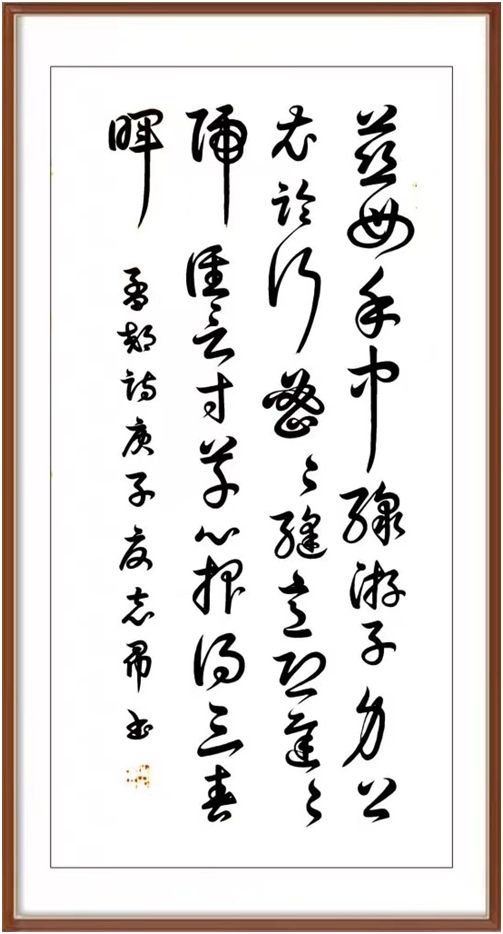 慈母手中線游子身上
衣臨行密々縫意恐遲々
歸誰言寸草心報得三春
暉
孟郊詩庚子夏志書